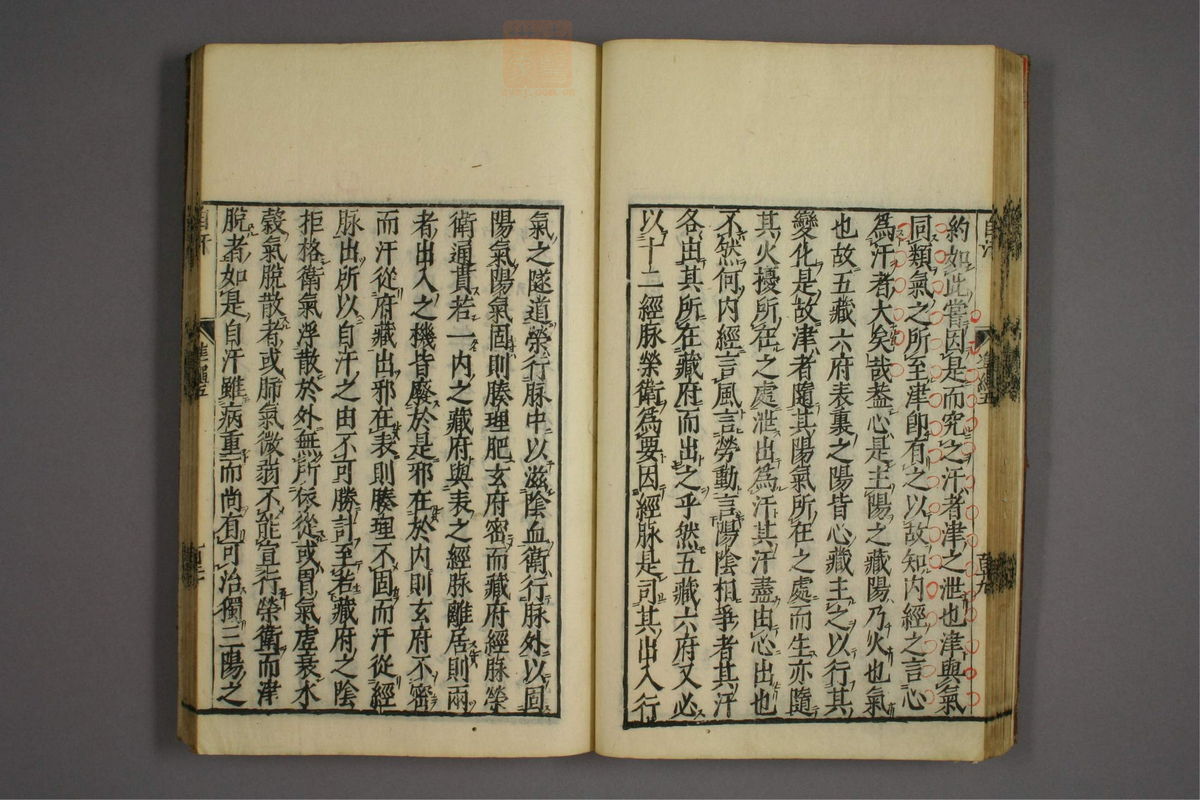 約如此嘗因是而究之汗者津之泄也津與氣
同類氣之所至津卽有之以故知內經之言心
爲汗者大矣哉葢心是主陽之藏陽乃火也氣
也故五藏六府表裏之陽皆心藏主之以行其
變化是故津者隨其陽氣所在之處而生亦隨
其火擾所在之處泄出爲汗其汗盡由心出也
不然何內經言風言勞動言陽陰相爭者其汗
各由其所在藏府而出之乎然五藏六府又必
以十二經脉榮衛爲要因經脉是司其出入行
氣之隧道榮行脉中以滋陰血衛行脉外以固
陽氣陽氣固則腠理肥玄府密而藏府經脉榮
衛通貫若一內之藏府與表之經脉離居則兩
者出入之機皆廢於是邪在於內則玄府不密
而汗從府藏出邪在表則腠理不固而汗從經
脉出所以自汗之由不可勝計至若藏府之陰
拒格衛氣浮散於外無所依從或胃氣虛衰水
穀氣脫散者或肺氣微弱不能宣行榮衛而津
脫者如是自汗雖病重而尚有可治獨三陽之
自汗